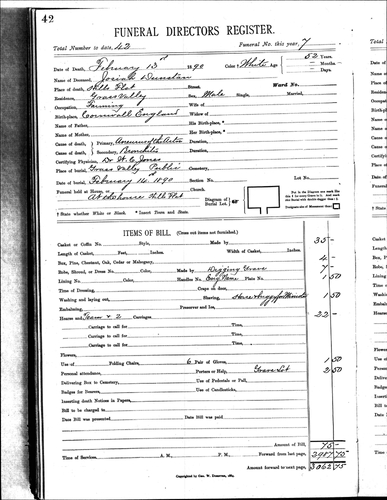 42
FUNERAL DIRECTORS REGISTER.
Total Number to date, 42 Funeral No. this year, 7
Date of Death, February 13 1890 Color † White Age 52 Years.
Months.
Days.
Name of Deceased, Josiah Dunstan
Place of death, Hills Flat Street. Ward No.
Residence, Grass Valley Sex, Male Single, Married,
Occupation, Farming Wife of
Birth-place, Cornwall England Widow of
Name of Father, His Birth-place, *
Name of Mother, Her Birth-place, *
Cause of death, Primary, Duration,
Cause of death, Secondary, Bronchitis Duration,
Certifying Physician, Dr W. C. Jones
Place of burial, Grass Valley Public Cemetery,
Date of burial, February 14, 1890 Section No.
Funeral held at House, or Church.
At Hills Flat
Diagram of Burial Lot.
† State whether White or Black. * Insert Town and State.
ITEMS OF BILL.
Casket or Coffin No. Style, 35 -
Length of Casket, Feet, Inches. Width of Casket, Inches.
Box, Pine, Chestnut, Oak, Cedar or Mahogany, 4 -
Robe, Shroud, or Dress No. Color, Made by Digging Grave 7 -
Lining No. Color, Handles No. Plate No. 1 50
Time of Dressing, Crape on door,
Washing and laying out, Shaving, 1 50
Embalming, Preserver and Ice,
Hearse and Team & 2 Carriages. 22 -
Carriage to call for Time,
Carriage to call for Time,
Carriage to call for Time,
Carriage to call for Time,
Flowers,
Use of Folding Chairs, 6 Pair of Gloves, 1 50
Personal attendance, Porters or Help, Grave Lot 2 50
Delivering Box to Cemetery, Use of Pedestals or Pall,
Badges for Bearers, Use of Candlesticks,
Inserting death Notices in Papers,
Bill to be charged to
Date Bill was presented Date Bill was paid
Amount of Bill, 75 -
Time of Services, A. M., P. M. Forward from last page, 2987 75
Amount forward to next page, 3062 75